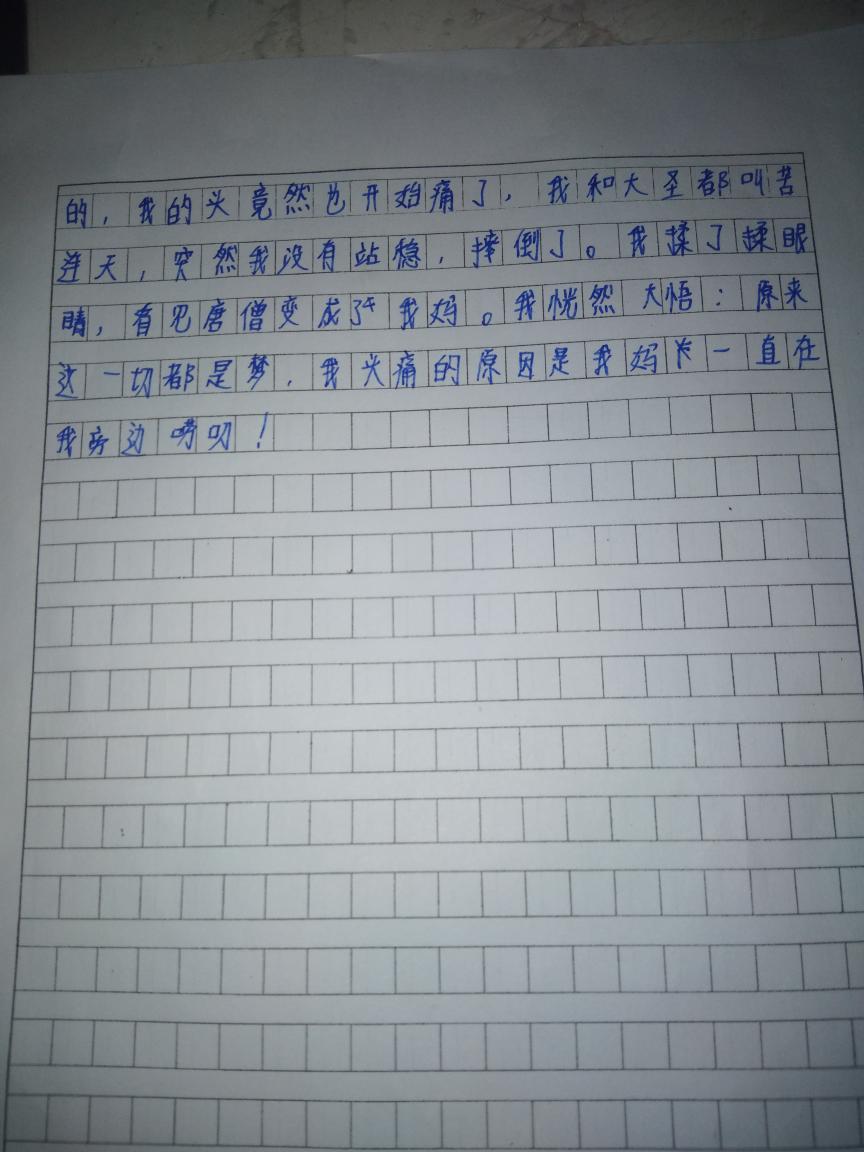 的，我的头竟然也开始痛了，我和大圣都叫苦
连天，突然我没有站稳，摔倒了。我揉了揉眼
睛，看见唐僧变成了我妈。我恍然大悟：原来
这一切都是梦，我头痛的原因是我妈一直在
我旁边唠叨！